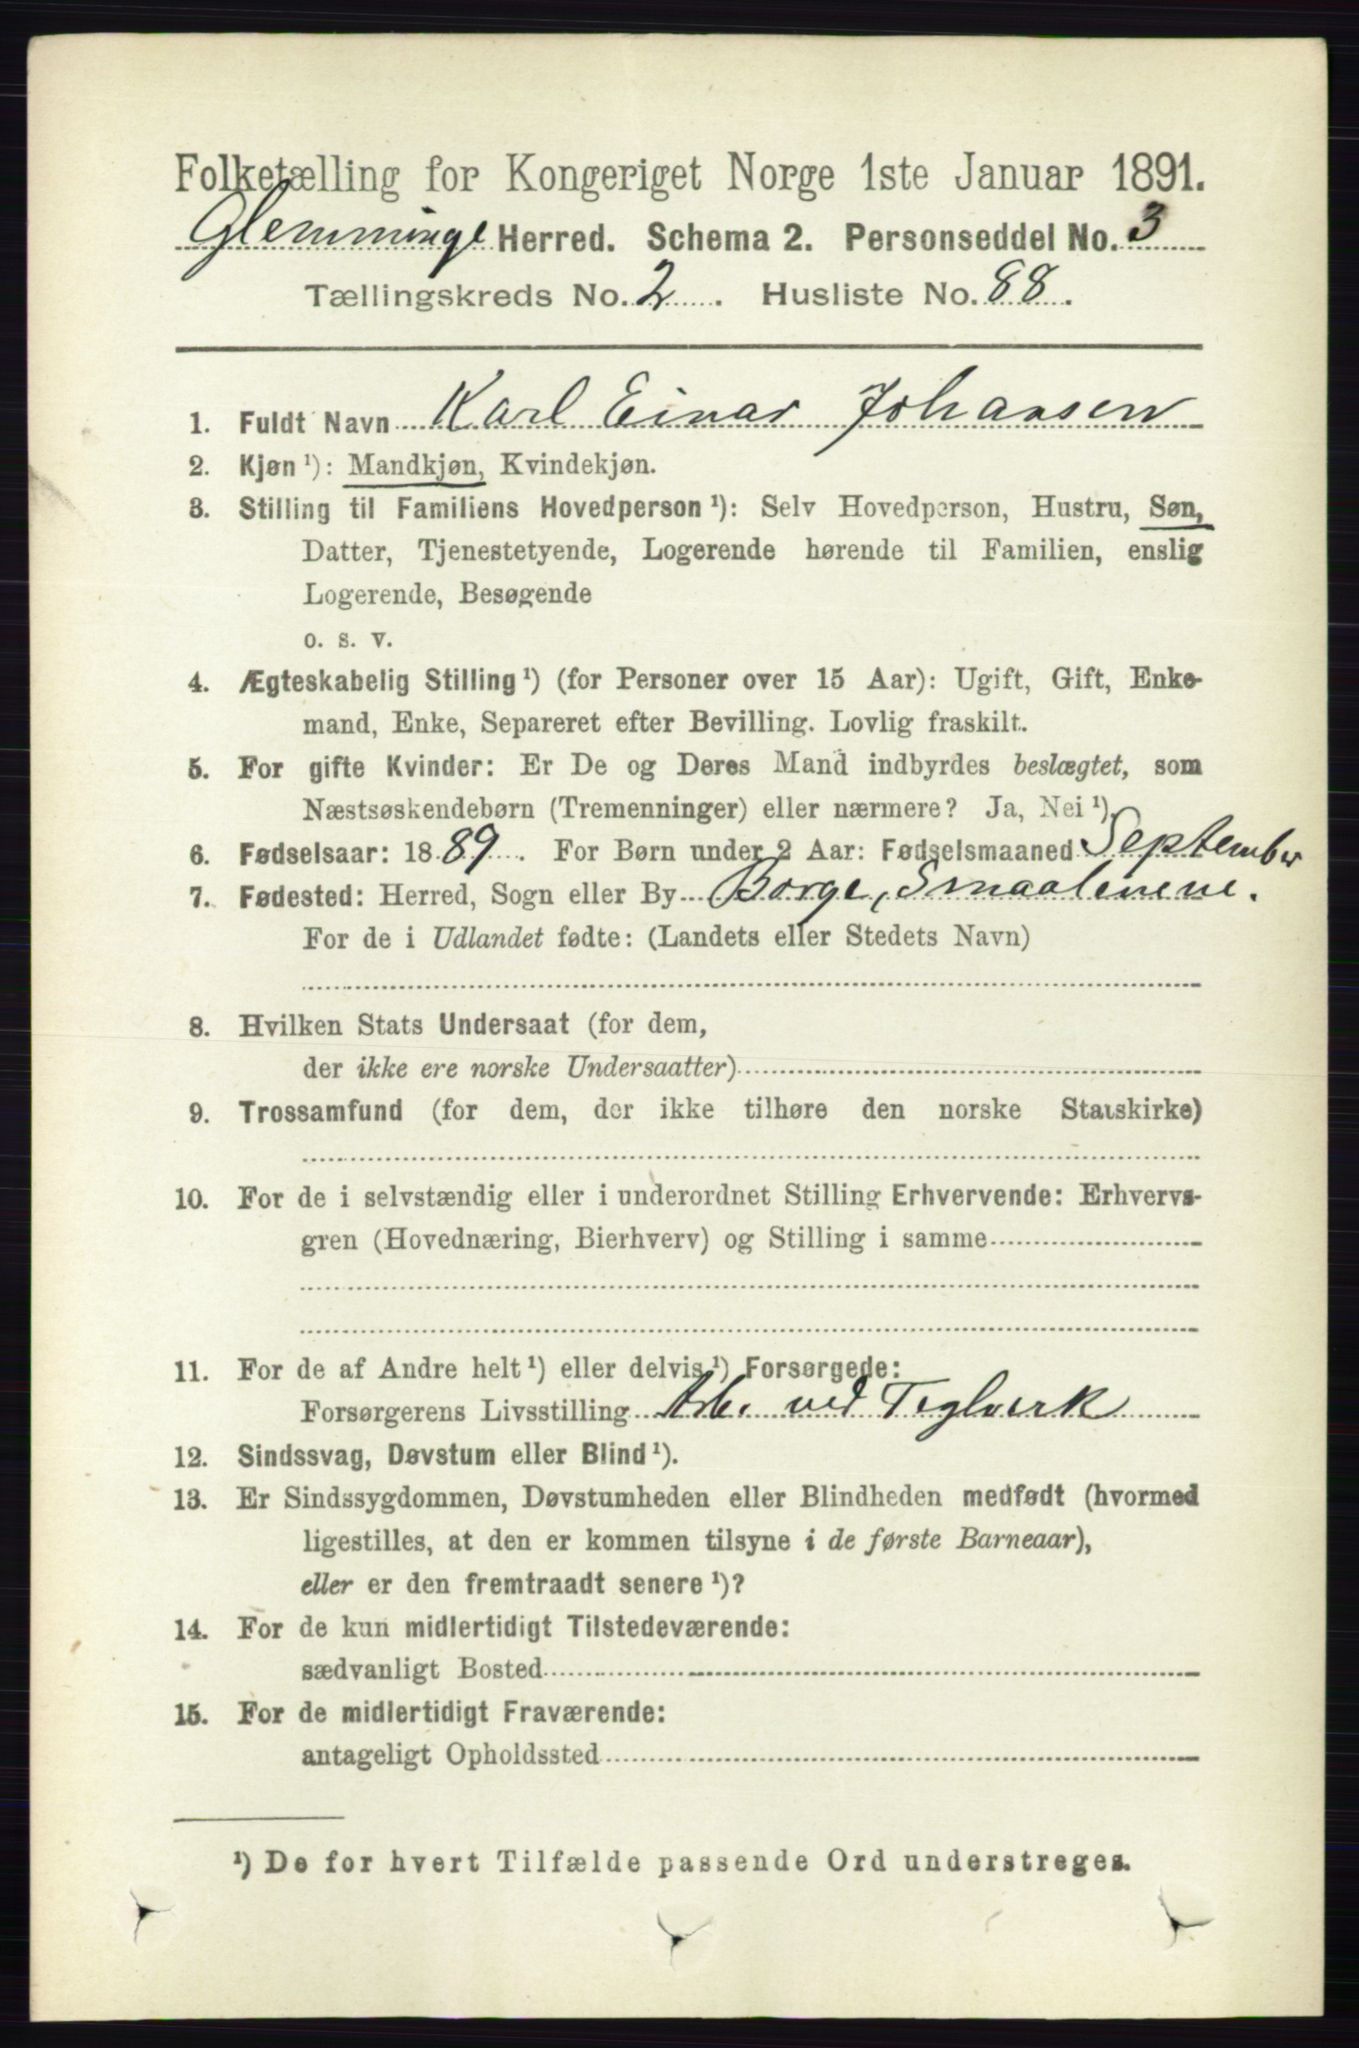 Folketælling for Kongeriget Norge 1ste Januar 1891.
Glemminge Herred. Schema 2. Personseddel No. 3
Tællingskreds No. 2. Husliste No. 88.
1. Fuldt Navn Karl Einar Johansen
2. Kjøn ¹): Mandkjøn, Kvindekjøn.
3. Stilling til Familiens Hovedperson ¹): Selv Hovedperson, Hustru, Søn,
Datter, Tjenestetyende, Logerende hørende til Familien, enslig
Logerende, Besøgende
o. s. v.
4. Ægteskabelig Stilling ¹) (for Personer over 15 Aar): Ugift, Gift, Enke-
mand, Enke, Separeret efter Bevilling. Lovlig fraskilt.
5. For gifte Kvinder: Er De og Deres Mand indbyrdes beslægtet, som
Næstsøskendebørn (Tremenninger) eller nærmere? Ja, Nei ¹).
6. Fødselsaar: 1889. For Børn under 2 Aar: Fødselsmaaned September
7. Fødested: Herred, Sogn eller By Borge, Smaalenene.
For de i Udlandet fødte: (Landets eller Stedets Navn)
8. Hvilken Stats Undersaat (for dem,
der ikke ere norske Undersaatter)
9. Trossamfund (for dem, der ikke tilhøre den norske Statskirke)
10. For de i selvstændig eller i underordnet Stilling Erhvervende: Erhvervs-
gren (Hovednæring, Bierhverv) og Stilling i samme
11. For de af Andre helt ¹) eller delvis ¹) Forsørgede:
Forsørgerens Livsstilling Arb. ved Teglverk
12. Sindssvag, Døvstum eller Blind ¹).
13. Er Sindssygdommen, Døvstumheden eller Blindheden medfødt (hvormed
ligestilles, at den er kommen tilsyne i de første Barneaar),
eller er den fremtraadt senere ¹)?
14. For de kun midlertidigt Tilstedeværende:
sædvanligt Bosted
15. For de midlertidigt Fraværende:
antageligt Opholdssted
¹) De for hvert Tilfælde passende Ord understreges.